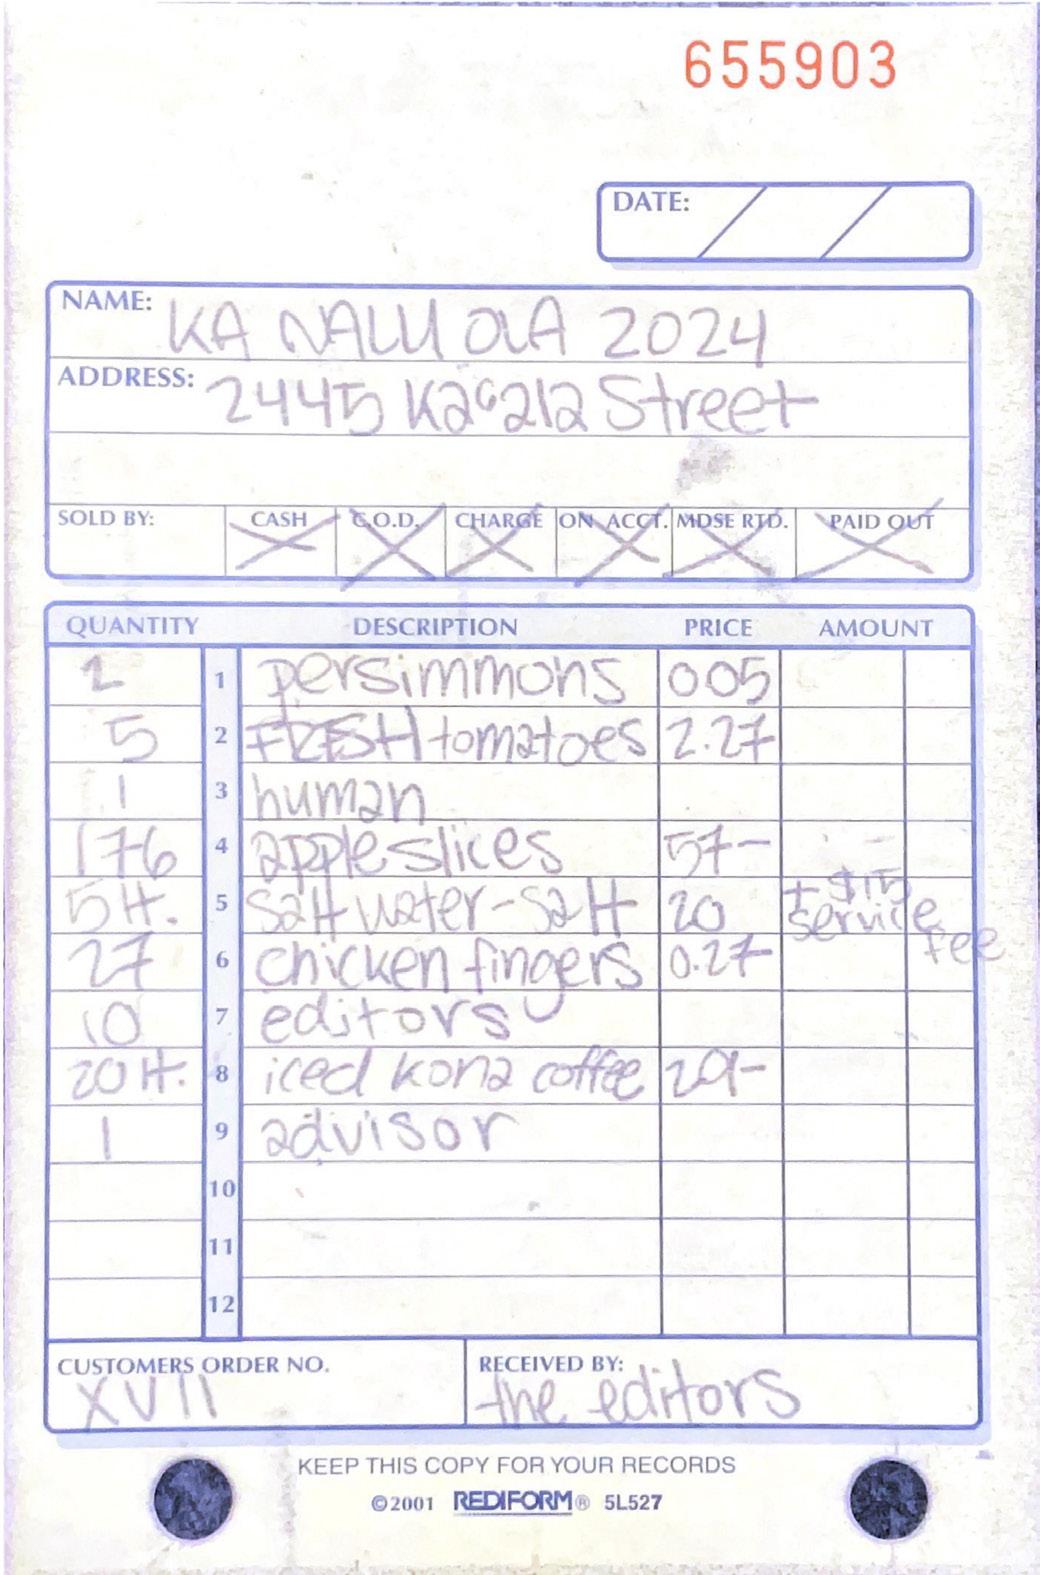 655903
DATE:
NAME: KA NALU OLA 2024
ADDRESS: 2445 Kaʻala Street
SOLD BY: CASH C.O.D. CHARGE ON ACCT. MDSE RTD. PAID OUT
QUANTITY DESCRIPTION PRICE AMOUNT
2 1 persimmons 005
5 2 FRESH tomatoes 2.27
1 3 human
176 4 apple slices 57-
5 lt. 5 salt water-salt 20 + $15 service fee
27 6 chicken fingers 0.27
10 7 editors
20 lt. 8 iced kona coffee 29-
1 9 advisor
10
11
12
CUSTOMERS ORDER NO. XVII
RECEIVED BY: the editors
KEEP THIS COPY FOR YOUR RECORDS
©2001 REDIFORM® 5L527